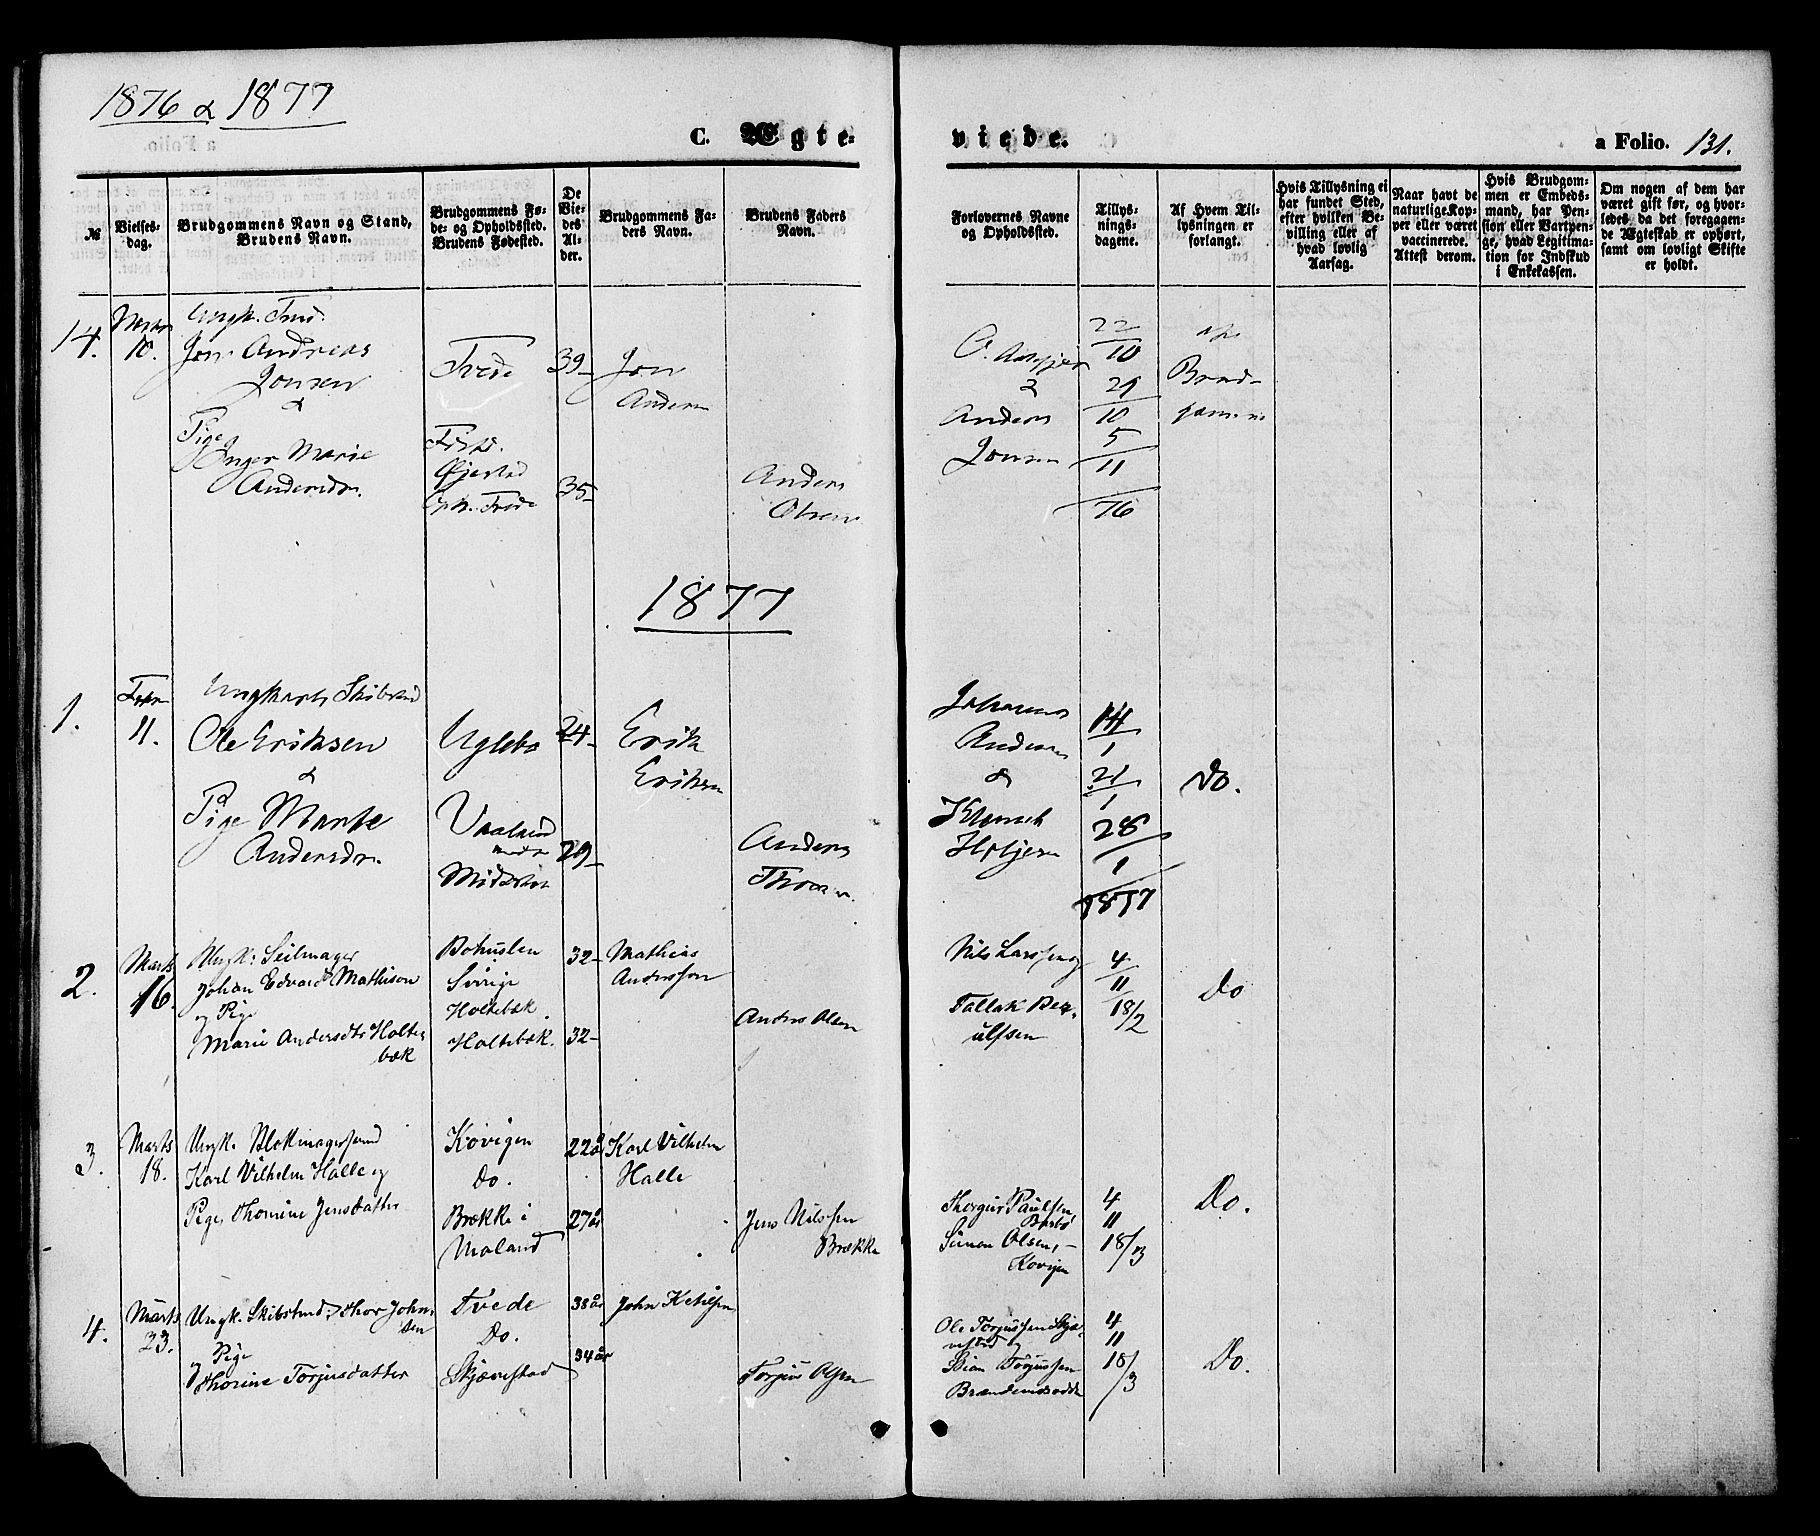 1876 & 1877
C. Ægte-
viede.
a Folio. 131.
№
Vielses-
dag.
Brudgommens Navn og Stand,
Brudens Navn.
Brudgommens Fø-
de- og Opholdssted.
Brudens Fødested.
De
Vie-
des
Al-
der.
Brudgommens Fa-
ders Navn.
Brudens Faders
Navn.
Forlovernes Navne
og Opholdssted.
Tillys-
nings-
dagene.
Af Hvem Til-
lysningen er
forlangt.
Hvis Tillysning ei
har fundet Sted,
efter hvilken Be-
villing eller af
hvad lovlig
Aarsag.
Naar havt de
naturlige Kop-
per eller været
vaccinerede.
Attest derom.
Hvis Brudgom-
men er Embeds-
mand, har Pen-
sion eller Vartpen-
ge, hvad Legitima-
tion for Indskud
i Enkekassen.
Om nogen af dem har
været gift før, og hvor-
ledes da det foregaaen-
de Ægteskab er ophørt,
samt om lovligt Skifte
er holdt.
14.
10.
Jon Andreas
Jonsen
&
Pige
Inger Marie
Andersdr.
Tvede
Øjestad
Tvede
39
35
Jon
Andersen
Anders
Olsen
&
Anders
Jonsen
22/10
29/10
5/11
76
Brud-
1877
1.
11.
Ungkarl
Ole Eriksen
&
Pige Marte
Andersdr.
Uglebo
24
29
Erik
Eriksen
Anders
Johannes
Andersen
&
14/1
21/1
28/1
1877
Do.
2.
Marts
16.
Ungk. Seilmager
Johan Edvard Mathison
og Pige
Marie Andersdtr Holte
bæk
Bohuslen
Sverige
Holtebæk.
Holtebæk.
32
32
Mathias
Andersson
Anders Olsen
Nils Larssen og
Tallak
ulfsen
4/11
18/2
Do
3.
Marts
18.
Ungk. Blokmagersvend
Karl Vilhelm Halle og
Pige Thomine Jensdatter
Kovigen
Do.
Brække i
Moland
22 år
27 år
Karl Vilhelm
Halle
Jens Nilssen
Brække
Thorgius Paulsen,
Barbo
Simon Olsen,
Kovigen
4
11
18/3
Do.
4.
Marts
23.
Ungk. Skibstmd. Thor John-
sen
og Pige
Thorine Torjusdatter
Tvede
Do.
Skjævestad
38 år
34 år
John Ketilsen
Torjus Olsen
Ole Torjussen Skjæ-
vestad og
Stian Torjussen
4
11
18/3
Do.